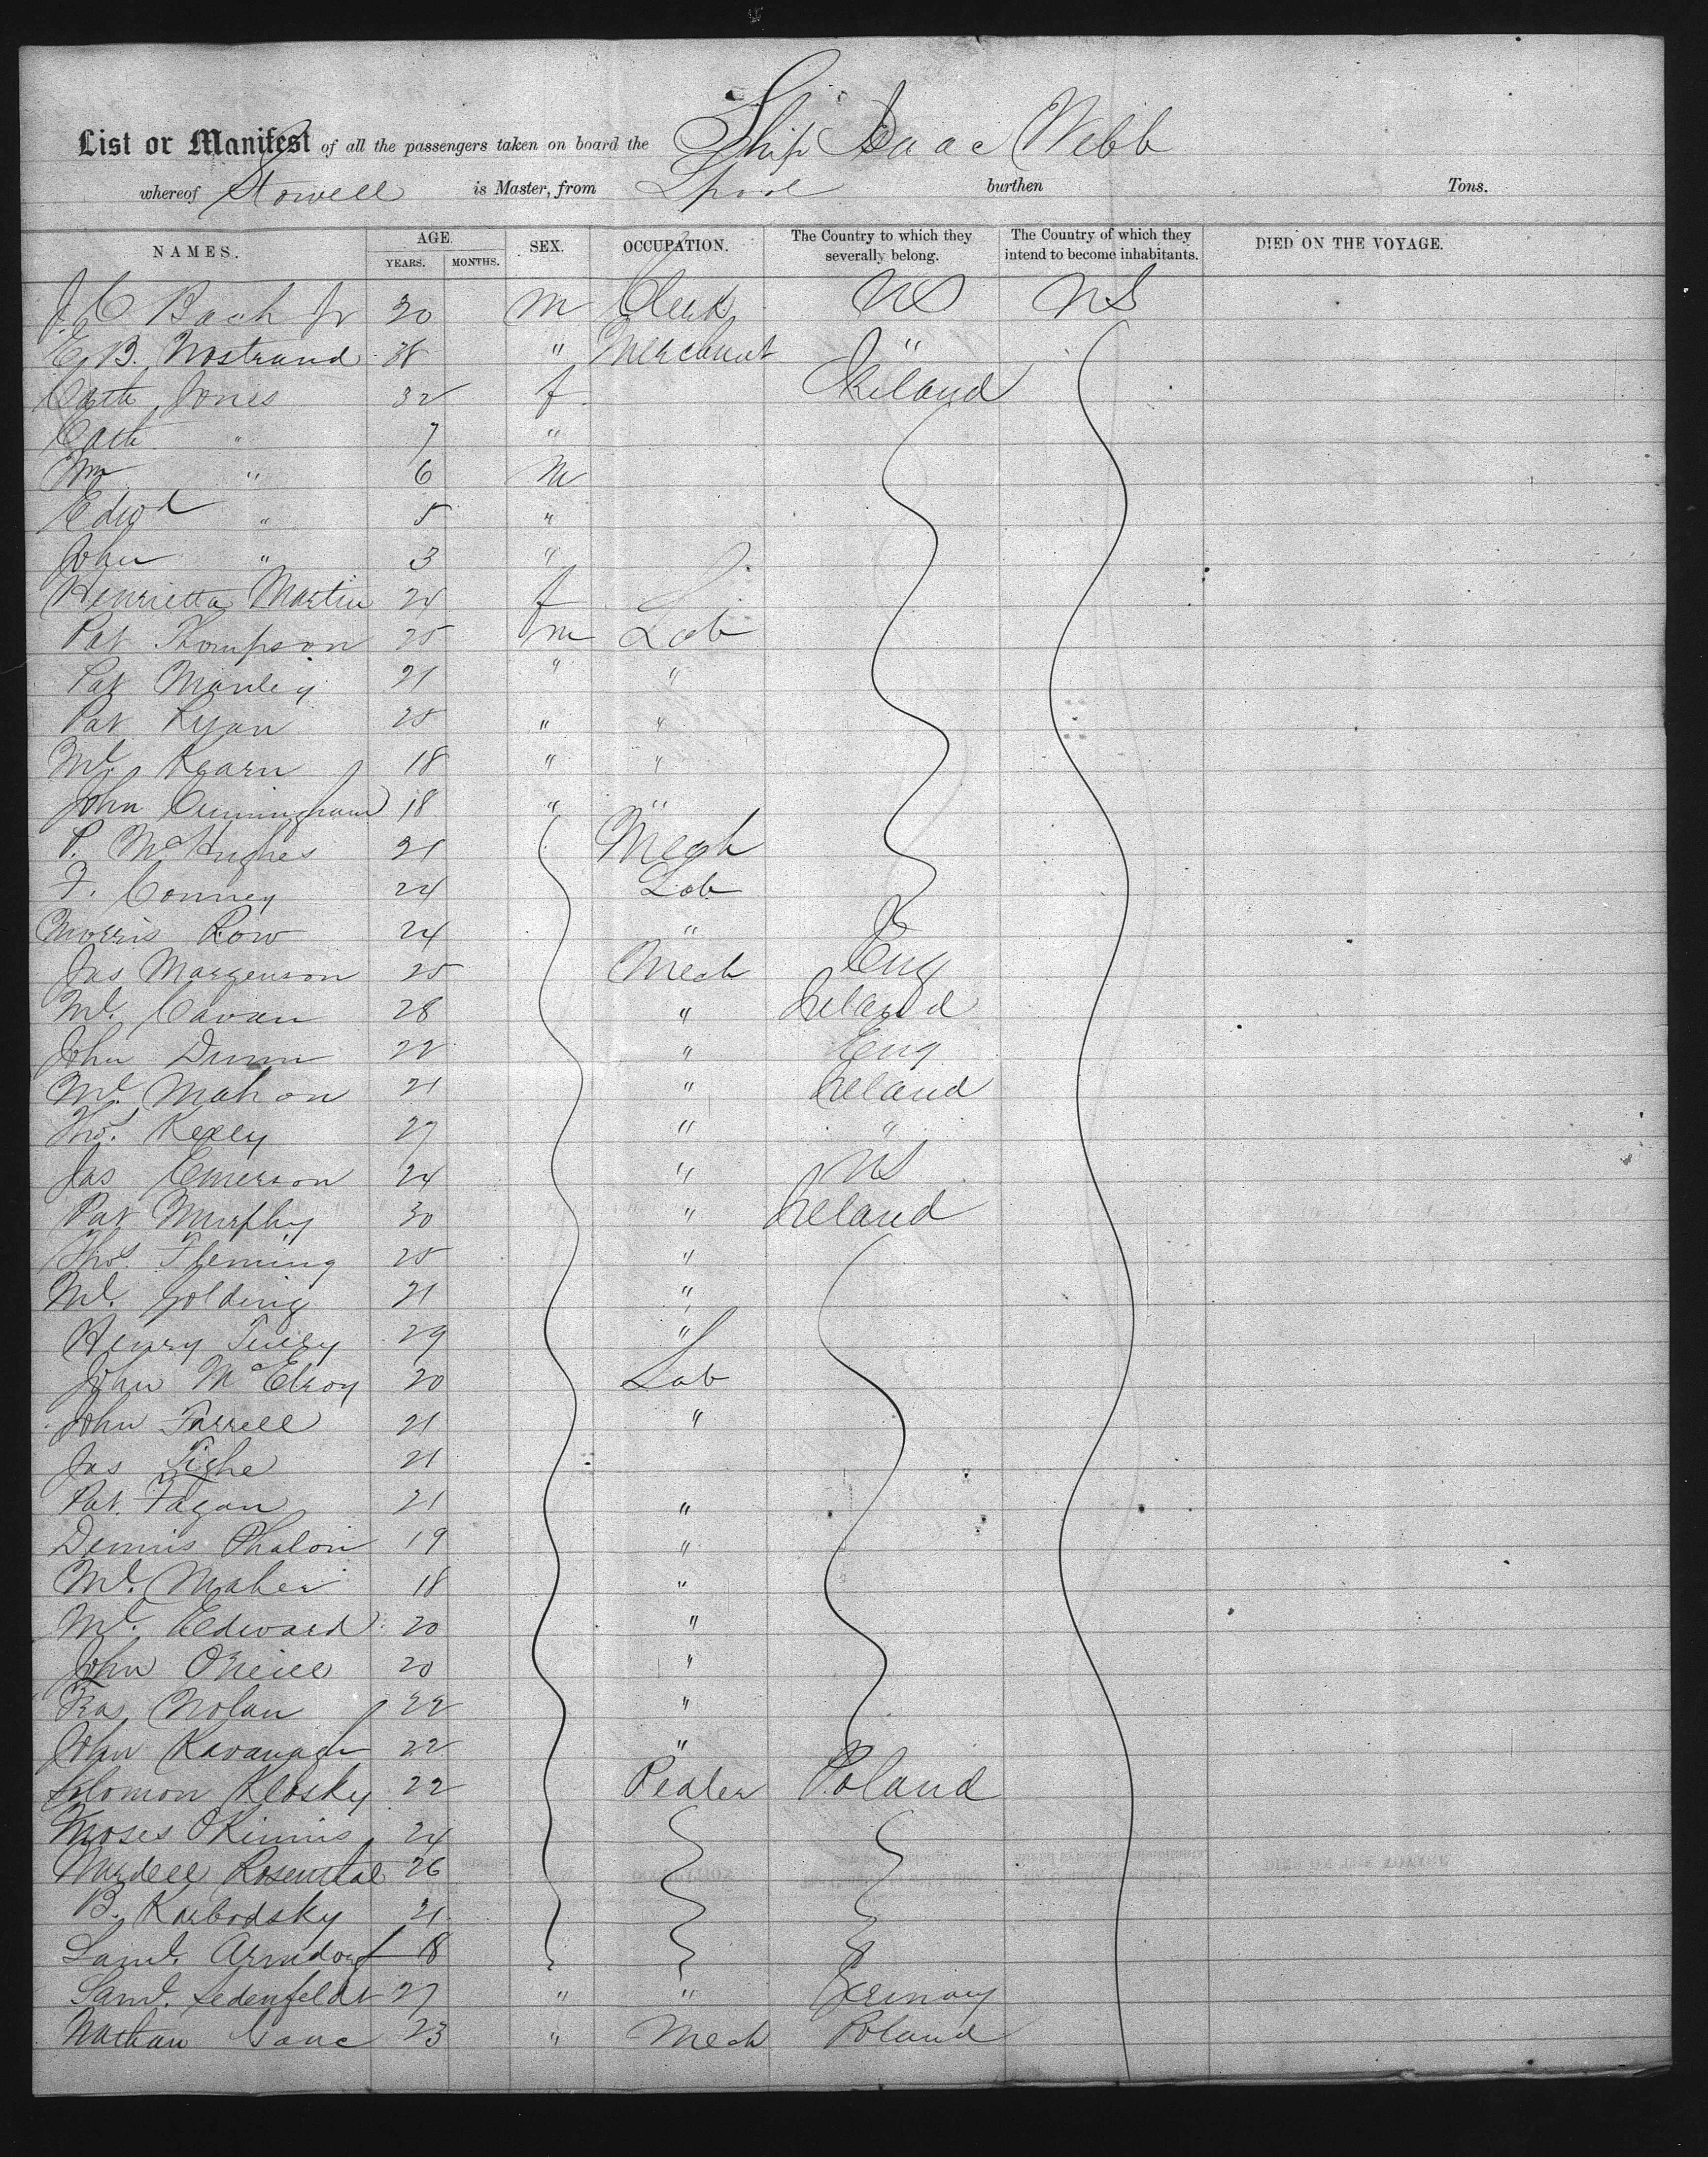 List or Manifest of all the passengers taken on board the Ship Isaac Webb
whereof Stowell is Master, from Lpool burthen Tons.
NAMES. AGE. YEARS. MONTHS. SEX. OCCUPATION. The Country to which they severally belong. The Country of which they intend to become inhabitants. DIED ON THE VOYAGE.
J. C Bach Jr 30 m Clerk US US
E. B. Nostrand 38 " Merchant "
Cath Jones 32 f Ireland
Cath " 7 "
Wm " 6 M
Edwd " 5 "
John " 3 "
Henrietta Martin 24 f
Pat Thompson 25 m Lab
Pat Manley 21 " "
Pat Ryan 25 " "
Ml. Kearn 18 " "
John Cunningham 18 " "
P. McHughes 21 Mech
F. Conney 24 Lab
Morris Row 24 "
Jas Margenson 25 Mech Eng
Ml. Cavan 28 " Ireland
John Dunn 22 " Eng
Ml. Mahon 21 " Ireland
Thos. Kelly 27 " "
Jas Emerson 24 " US
Pat Murphy 30 " Ireland
Thos. Fleming 25 "
Ml. Golding 21 "
Henry 29 "
John McElroy 20 Lab
John Farrell 21 "
Jas Tighe 21
Pat. Fagan 21 "
Dennis Phalon 19 "
Ml. Maher 18 "
Ml. Edward 20 "
John ONeill 20 "
Fra. Nolan 22 "
John Kavanagh 22 "
Solomon Klosky 22 Pedler Poland
Moses 24
Rosenthal 26
B. Karbodsky 21
Saml. Arndorf 18
Saml. Sedenfeldt 27 " " Germany
Nathan Isaac 23 " Mech Poland